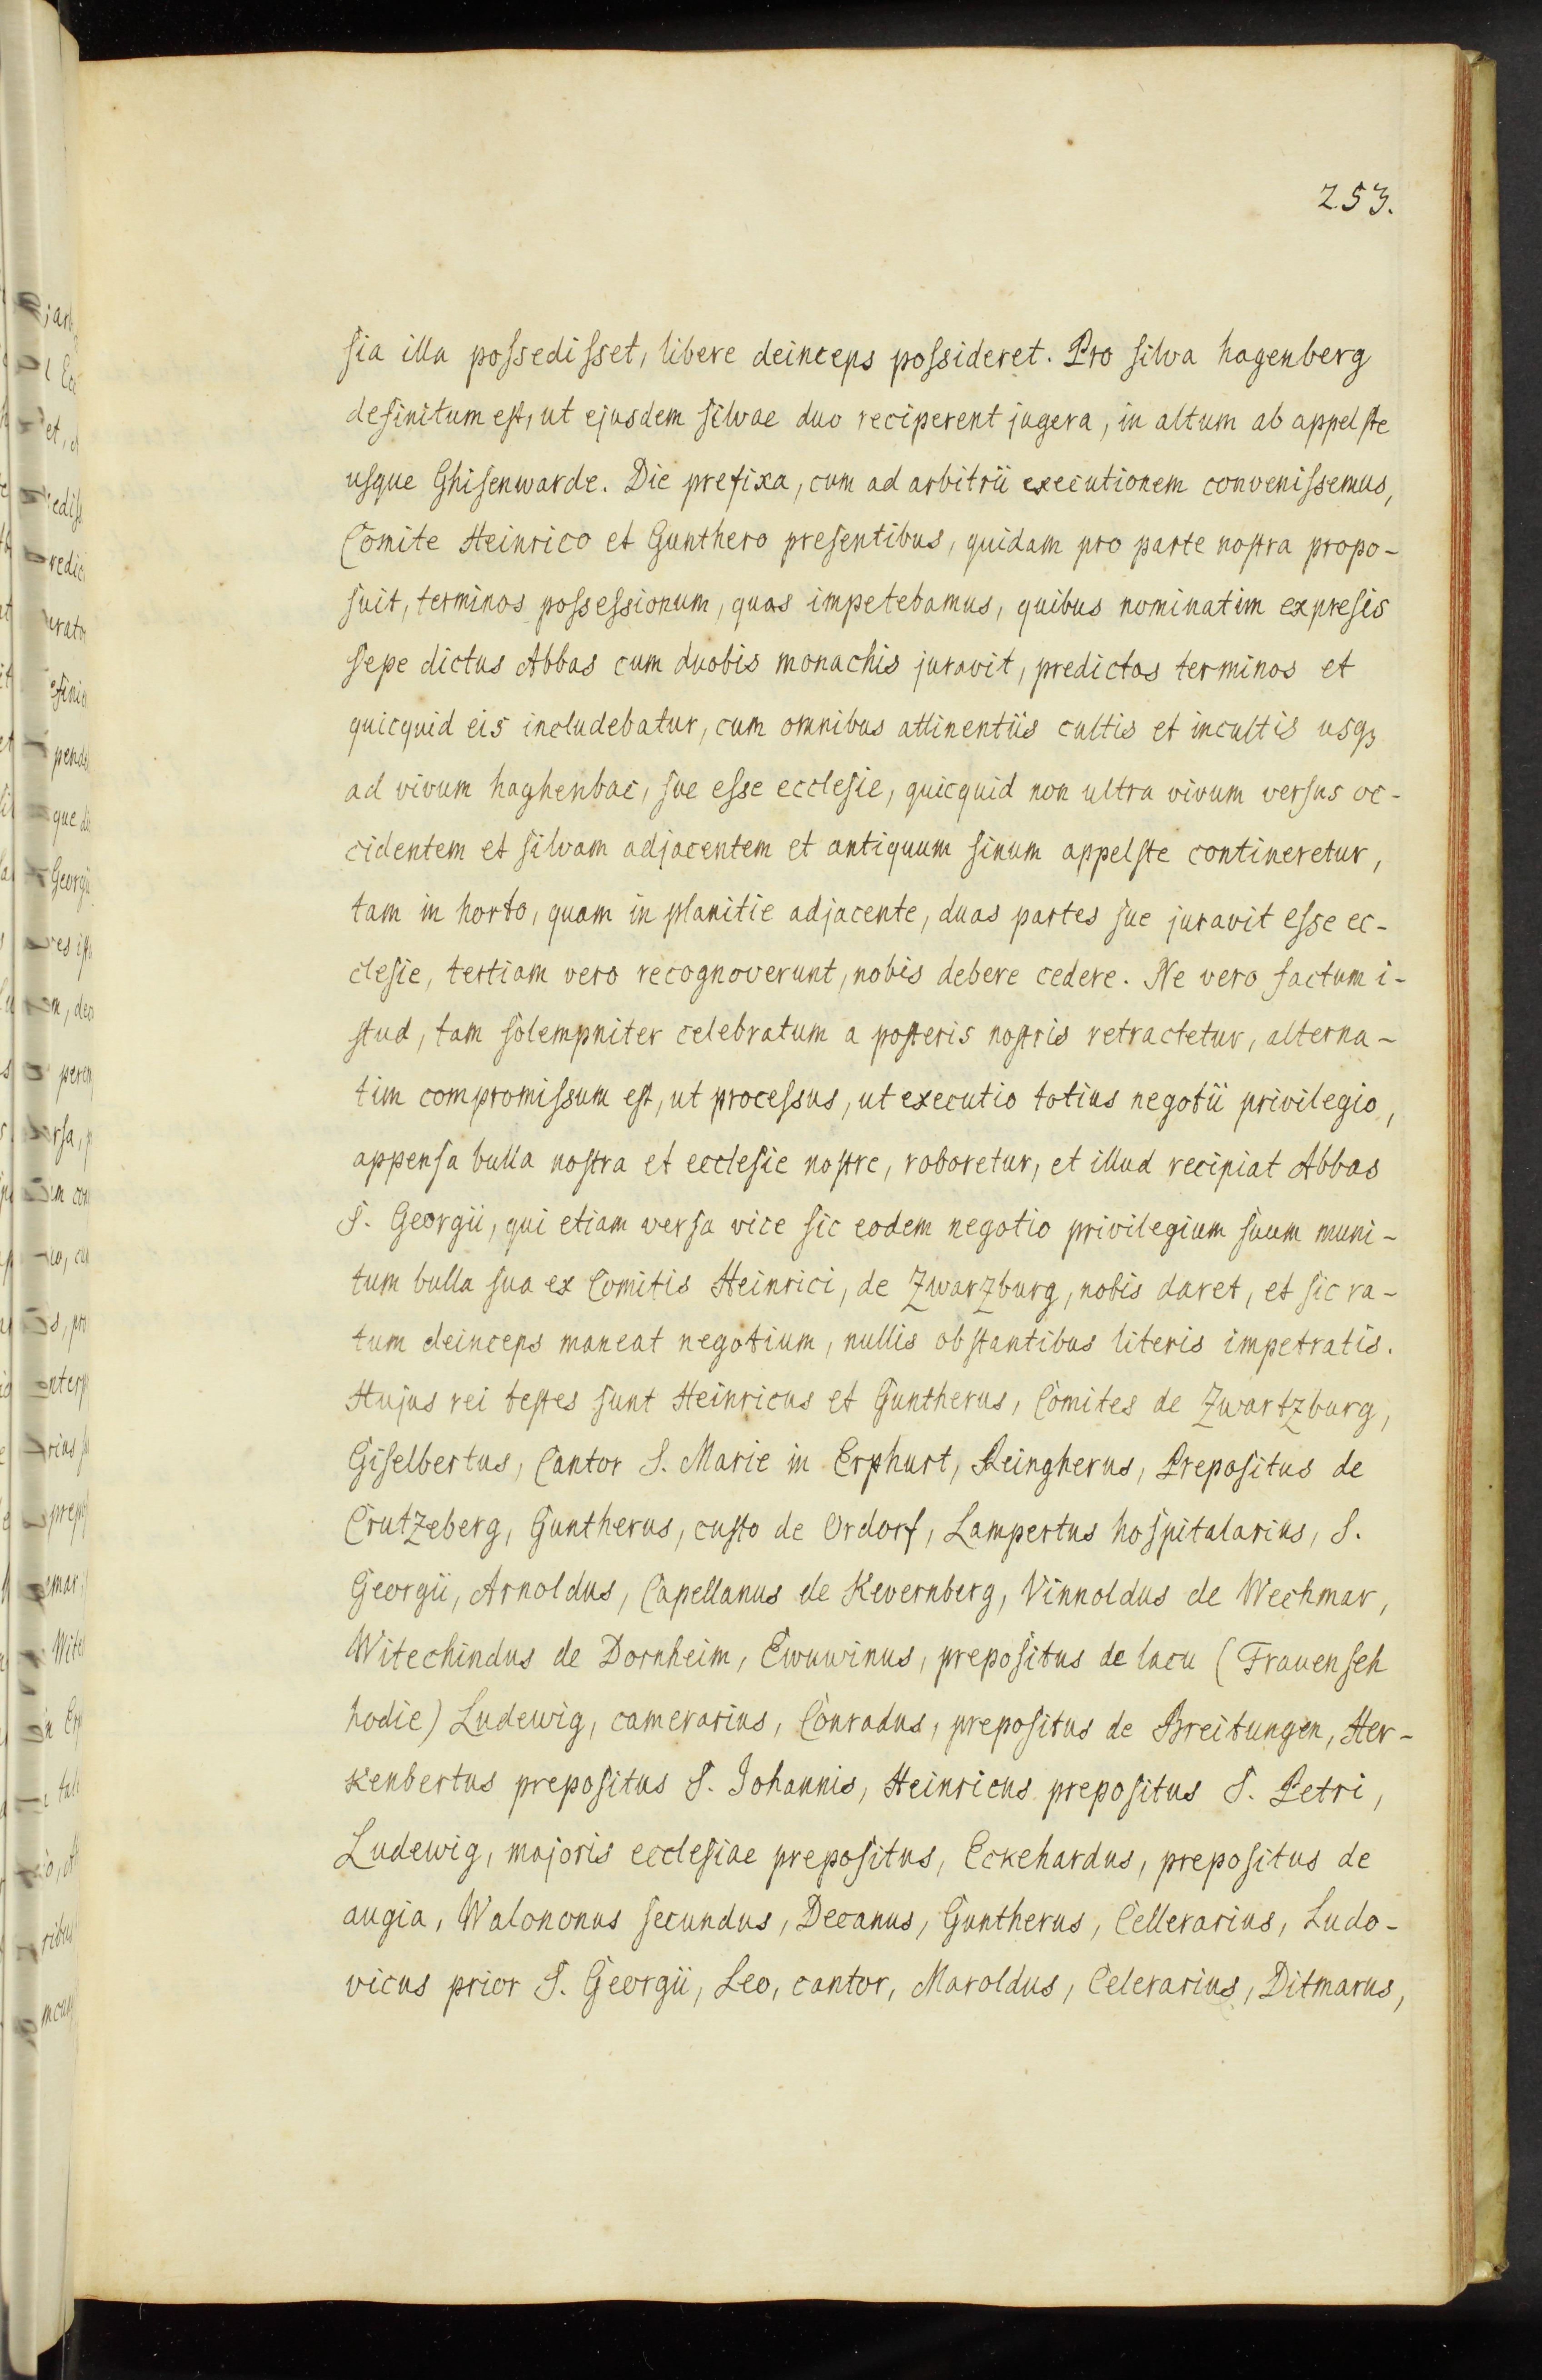 253.
sia illa possedisset, libere deinceps possideret. Pro silva hagenberg
definitum est, ut ejusdem silvae duo reciperent jugera, in altum ab appelste
usque Ghisenwarde. Die prefixa, cum ad arbitrii executionem convenissemus,
Comite Heinrico et Gunthero presentibus, quidam pro parte nostra propo-
suit, terminos possessionum, quas impetebamus, quibus nominatim expresis
sepe dictus Abbas cum duobis monachis juravit, predictos terminos et
quicquid eis includebatur, cum omnibus attinentiis cultis et incultis usqz
ad vivum haghenbac, sue esse ecclesie, quicquid non ultra vivum versus oc-
cidentem et silvam adjacentem et antiquum sinum appelste contineretur,
tam in horto, quam in planitie adjacente, duas partes sue juravit esse ec-
clesie, tertiam vero recognoverunt, nobis debere cedere. Ne vero factum i-
stud, tam solempniter celebratum a posteris nostris retractetur, alterna-
tim compromissum est, ut processus, ut executio totius negotii privilegio,
appensa bulla nostra et ecclesie nostre, roboretur, et illud recipiat Abbas
S. Georgii, qui etiam versa vice sic eodem negotio privilegium suum muni-
tum bulla sua ex Comitis Heinrici, de Zwarzburg, nobis daret, et sic ra-
tum deinceps maneat negotium, nullis obstantibus literis impetratis.
Hujus rei testes sunt Heinricus et Guntherus, Comites de Zwartzburg,
Giselbertus, Cantor S. Marie in Erphurt, Reingherus, Prepositus de
Crutzeberg, Guntherus, custo de Ordorf, Lampertus hospitalarius, S.
Georgii, Arnoldus, Capellanus de Kevernberg, Vinnoldus de Wechmar,
Witechindus de Dornheim, Ewuwinus, prepositus de lacu (Frauenseh
hodie) Ludewig, camerarius, Conradus, prepositus de Breitungen, Her-
kenbertus prepositus S. Johannis, Heinricus prepositus S. Petri,
Ludewig, majoris ecclesiae prepositus, Eckehardus, prepositus de
augia, Walononus secundus, Decanus, Guntherus, Cellerarius, Ludo-
vicus prior S. Georgii, Leo, cantor, Maroldus, Celerarius, Ditmarus,